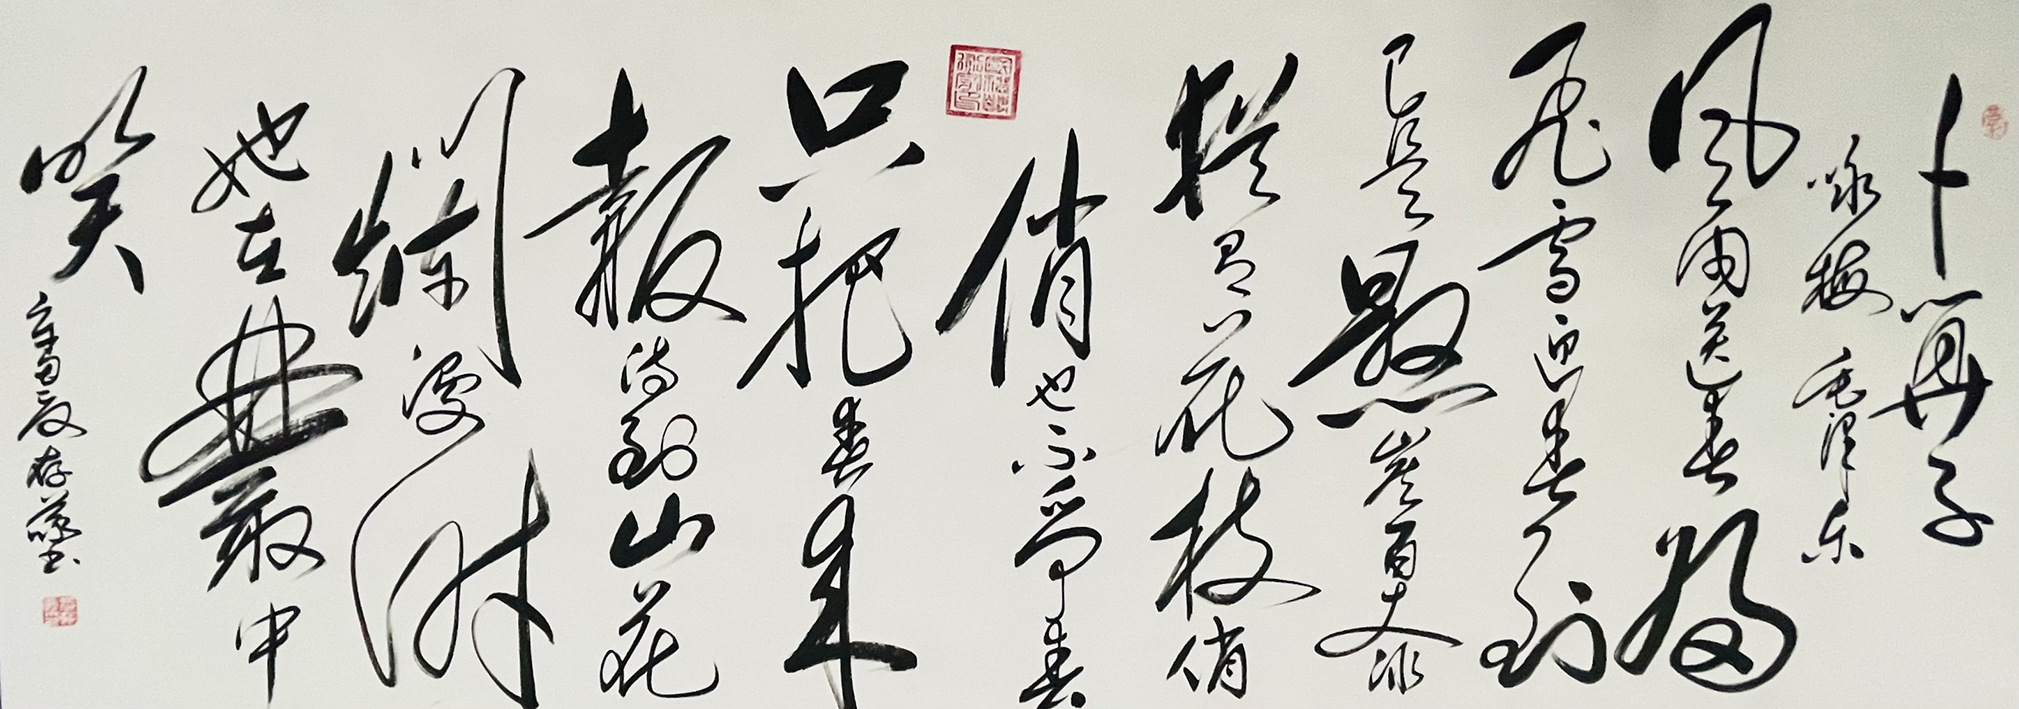 卜算子
咏梅 毛泽东
风雨送春归
飞雪迎春到
已是懸崖百丈冰
犹有花枝俏
俏也不争春
只把春来
報待到山花
爛漫时
她在叢中
笑
书